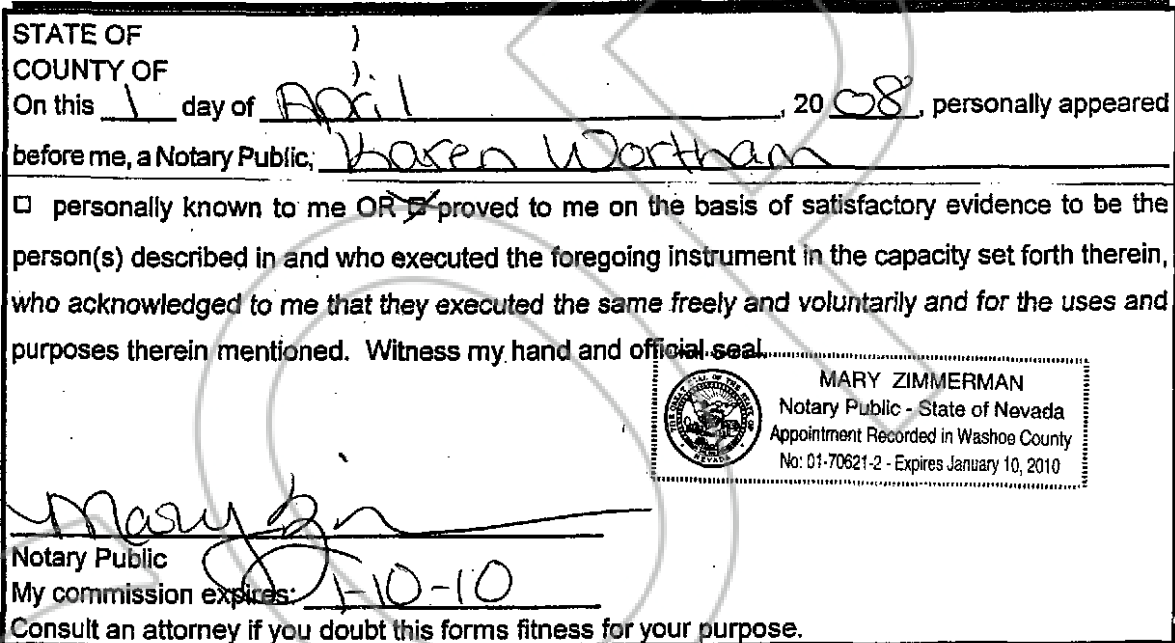 STATE OF )
COUNTY OF ).
On this 1 day of April, 2008, personally appeared
before me, a Notary Public, Karen Wortham
☐ personally known to me OR ☒ proved to me on the basis of satisfactory evidence to be the
person(s) described in and who executed the foregoing instrument in the capacity set forth therein,
who acknowledged to me that they executed the same freely and voluntarily and for the uses and
purposes therein mentioned. Witness my hand and official seal.
MARY ZIMMERMAN
Notary Public - State of Nevada
Appointment Recorded in Washoe County
No: 01-70621-2 - Expires January 10, 2010
Mary
Notary Public
My commission expires: 1-10-10
Consult an attorney if you doubt this forms fitness for your purpose.